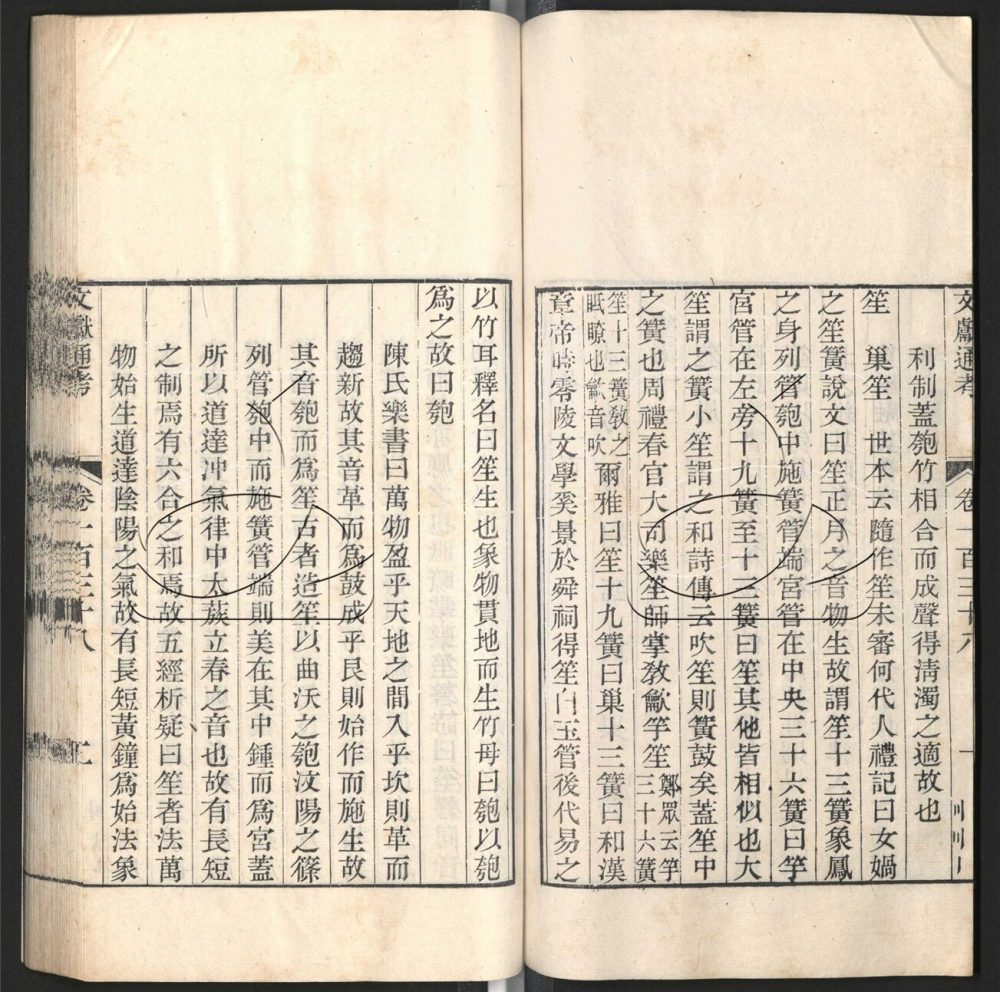 文獻通考 卷一百三十八
利制蓋匏竹相合而成聲得淸濁之適故也
笙 巢笙 世本云隨作笙未審何代人禮記曰女媧
之笙簧說文曰笙正月之音物生故謂笙十三簧象鳳
之身列管匏中施簧管端宮管在中央三十六簧曰竽
宮管在左旁十九簧至十三簧曰笙其他皆相似也大
笙謂之簧小笙謂之和詩傳云吹笙則簧鼓矣蓋笙中
之簧也周禮春官大司樂笙師掌敎龡竽笙鄭眾云竽三十六簧
笙十三簧敎之眡瞭也龡音吹爾雅曰笙十九簧曰巢十三簧曰和漢
章帝時零陵文學奚景於舜祠得笙白玉管後代易之
以竹耳釋名曰笙生也象物貫地而生竹母曰匏以匏
爲之故曰匏
陳氏樂書曰萬物盈乎天地之間入乎坎則革而
趨新故其音革而爲鼓成乎艮則始作而施生故
其音匏而爲笙古者造笙以曲沃之匏汶陽之篠
列管匏中而施簧管端則美在其中鍾而爲宮蓋
所以道達冲氣律中太蔟立春之音也故有長短
之制焉有六合之和焉故五經析疑曰笙者法萬
物始生道達陰陽之氣故有長短黃鐘爲始法象
文獻通考 卷一百三十八